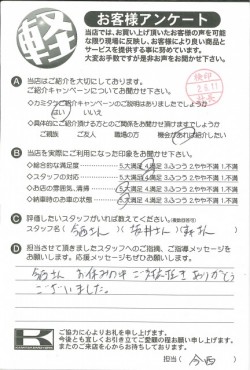 軽
お客様アンケート
当店では、お買い上げ頂いたお客様の声を可能
な限り現場に反映し、お客様により良い商品と
サービスを提供する事に努めています。
大変お手数ですが是非お声をお聞かせ下さい。
検印
2.6.11
A 当店はご紹介を大切にしております。
ご紹介キャンペーンについてお聞かせ下さい。
◇カミタケご紹介キャンペーンのご説明はありましたでしょうか
はい いいえ
◇具体的にご紹介頂ける方とのご関係をお聞かせ頂けますでしょうか
ご親族 ご友人 職場の方 機会があれば紹介したい
B 当店を実際にご利用になった印象をお聞かせ下さい。
◇総合的な満足度 5.大満足 4.満足 3.ふつう 2.やや不満 1.不満
◇スタッフの対応 5.大満足 4.満足 3.ふつう 2.やや不満 1.不満
◇お店の雰囲気、清掃 5.大満足 4.満足 3.ふつう 2.やや不満 1.不満
◇納車時のお車の状態 5.大満足 4.満足 3.ふつう 2.やや不満 1.不満
C 評価したいスタッフがいれば教えてください。(複数回答可)
スタッフ名( 今西さん )( 坂井さん )(
D 担当させて頂きましたスタッフへのご指摘、ご指導メッセージを
お願いします。応援メッセージもぜひお願いします。
今西さん お休みの中 ご対応ありがとう
ございました。
K
ご協力に心よりお礼を申し上げます。
今後とも宜しくお引き立てご愛顧の程お願い申し上げます。
またのご来店を心からお待ちしております。
担当( 今西 )